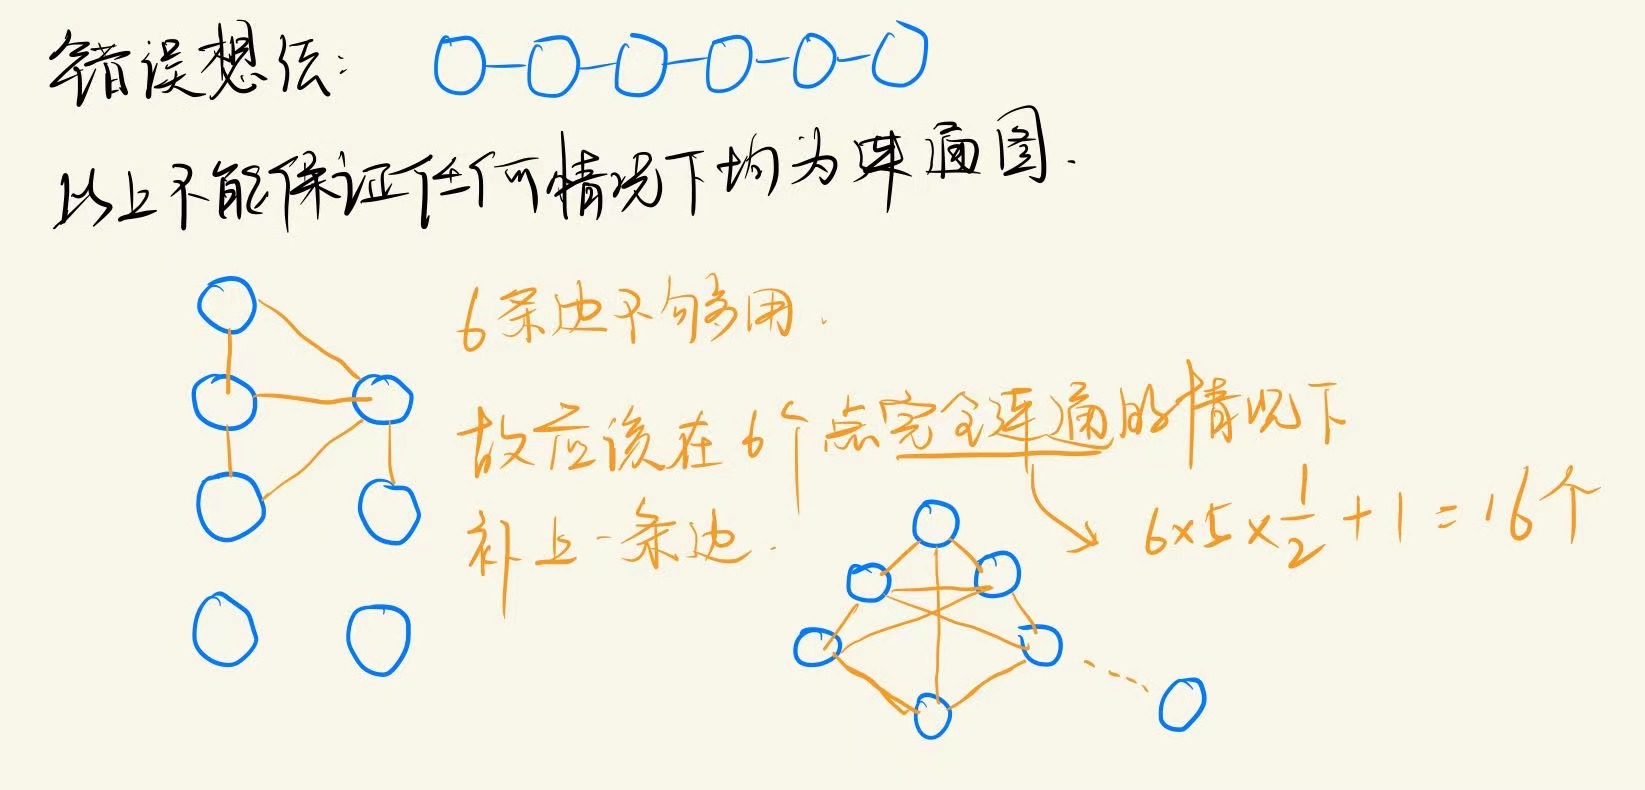 错误想法:
以上不能保证任何情况下均为连通图.
6条边不够用.
故应该在6个点完全连通的情况下
补上一条边.
6×5×1/2+1=16个